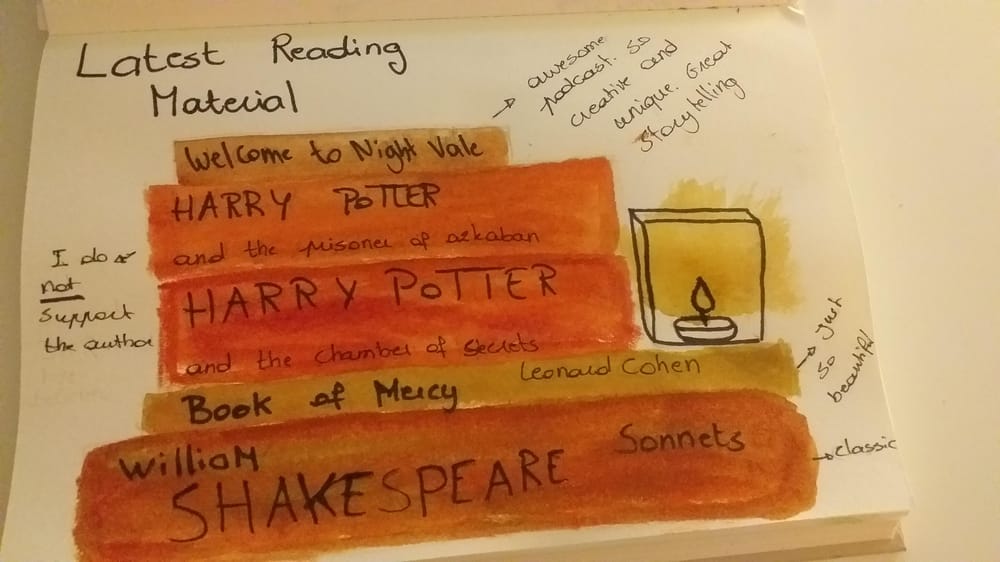 Latest Reading
Material
→ awesome
podcast. So
creative and
unique. Great
storytelling
Welcome to Night Vale
HARRY POTTER
and the prisoner of azkaban
I do
not
support
the author
HARRY POTTER
and the chamber of secrets
Book of Mercy Leonard Cohen
→ just
so
beautiful
William Sonnets
SHAKESPEARE
→ classic